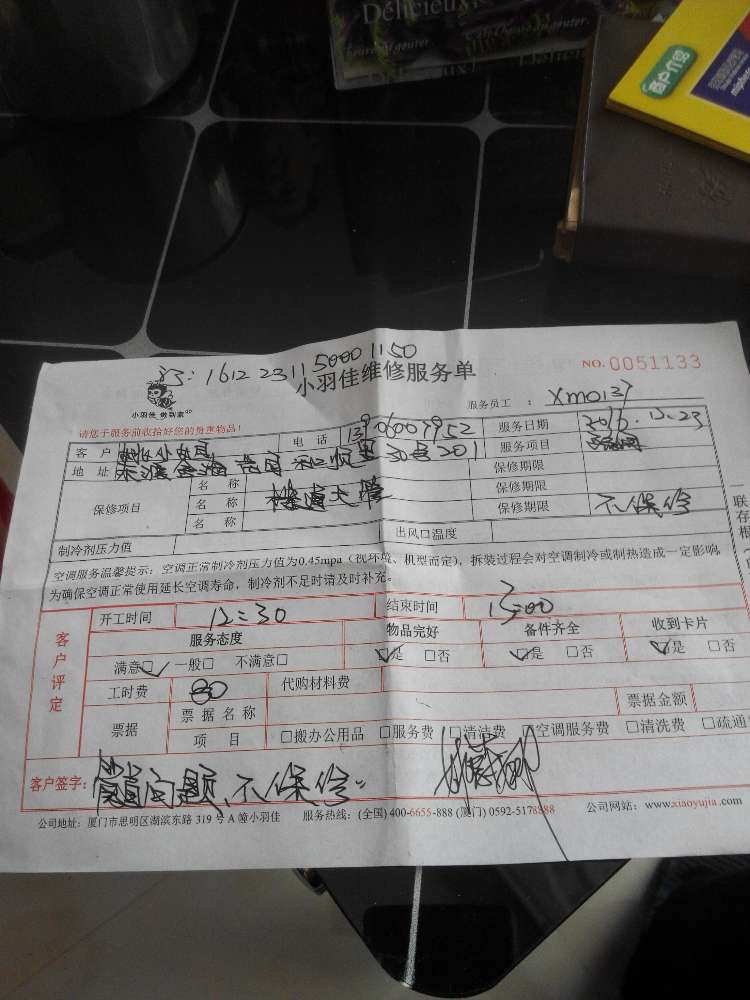 Délicieux
商户作业
1612231150001150
小羽佳维修服务单
NO.0051133
小羽佳 做到家
服务员工： xm0137
请您于服务前收拾好您的贵重物品！
客 户 电 话 13906007952 服务日期 2016.12.23
地 址 30号201 服务项目
保修项目 名 称 保修期限
名 称 保修期限
名 称 保修期限 不保修
制冷剂压力值 出风口温度
空调服务温馨提示：空调正常制冷剂压力值为0.45mpa（视环境、机型而定），拆装过程会对空调制冷或制热造成一定影响，
为确保空调正常使用延长空调寿命，制冷剂不足时请及时补充。
一联存根
客户评定
开工时间 12:30 结束时间 13:00
服务态度 物品完好 备件齐全 收到卡片
满意□✓ 一般□ 不满意□ ☑是 □否 ☑是 □否 ☑是 □否
工时费 80 代购材料费
票据 票据名称 票据金额
项 目 □搬办公用品 □服务费 □清洁费 □空调服务费 □清洗费 □疏通
客户签字： 管道问题，不保修。
公司地址：厦门市思明区湖滨东路 319 号 A 幢小羽佳 服务热线：(全国) 400-6655-888 (厦门) 0592-5178888 公司网站：www.xiaoyujia.com